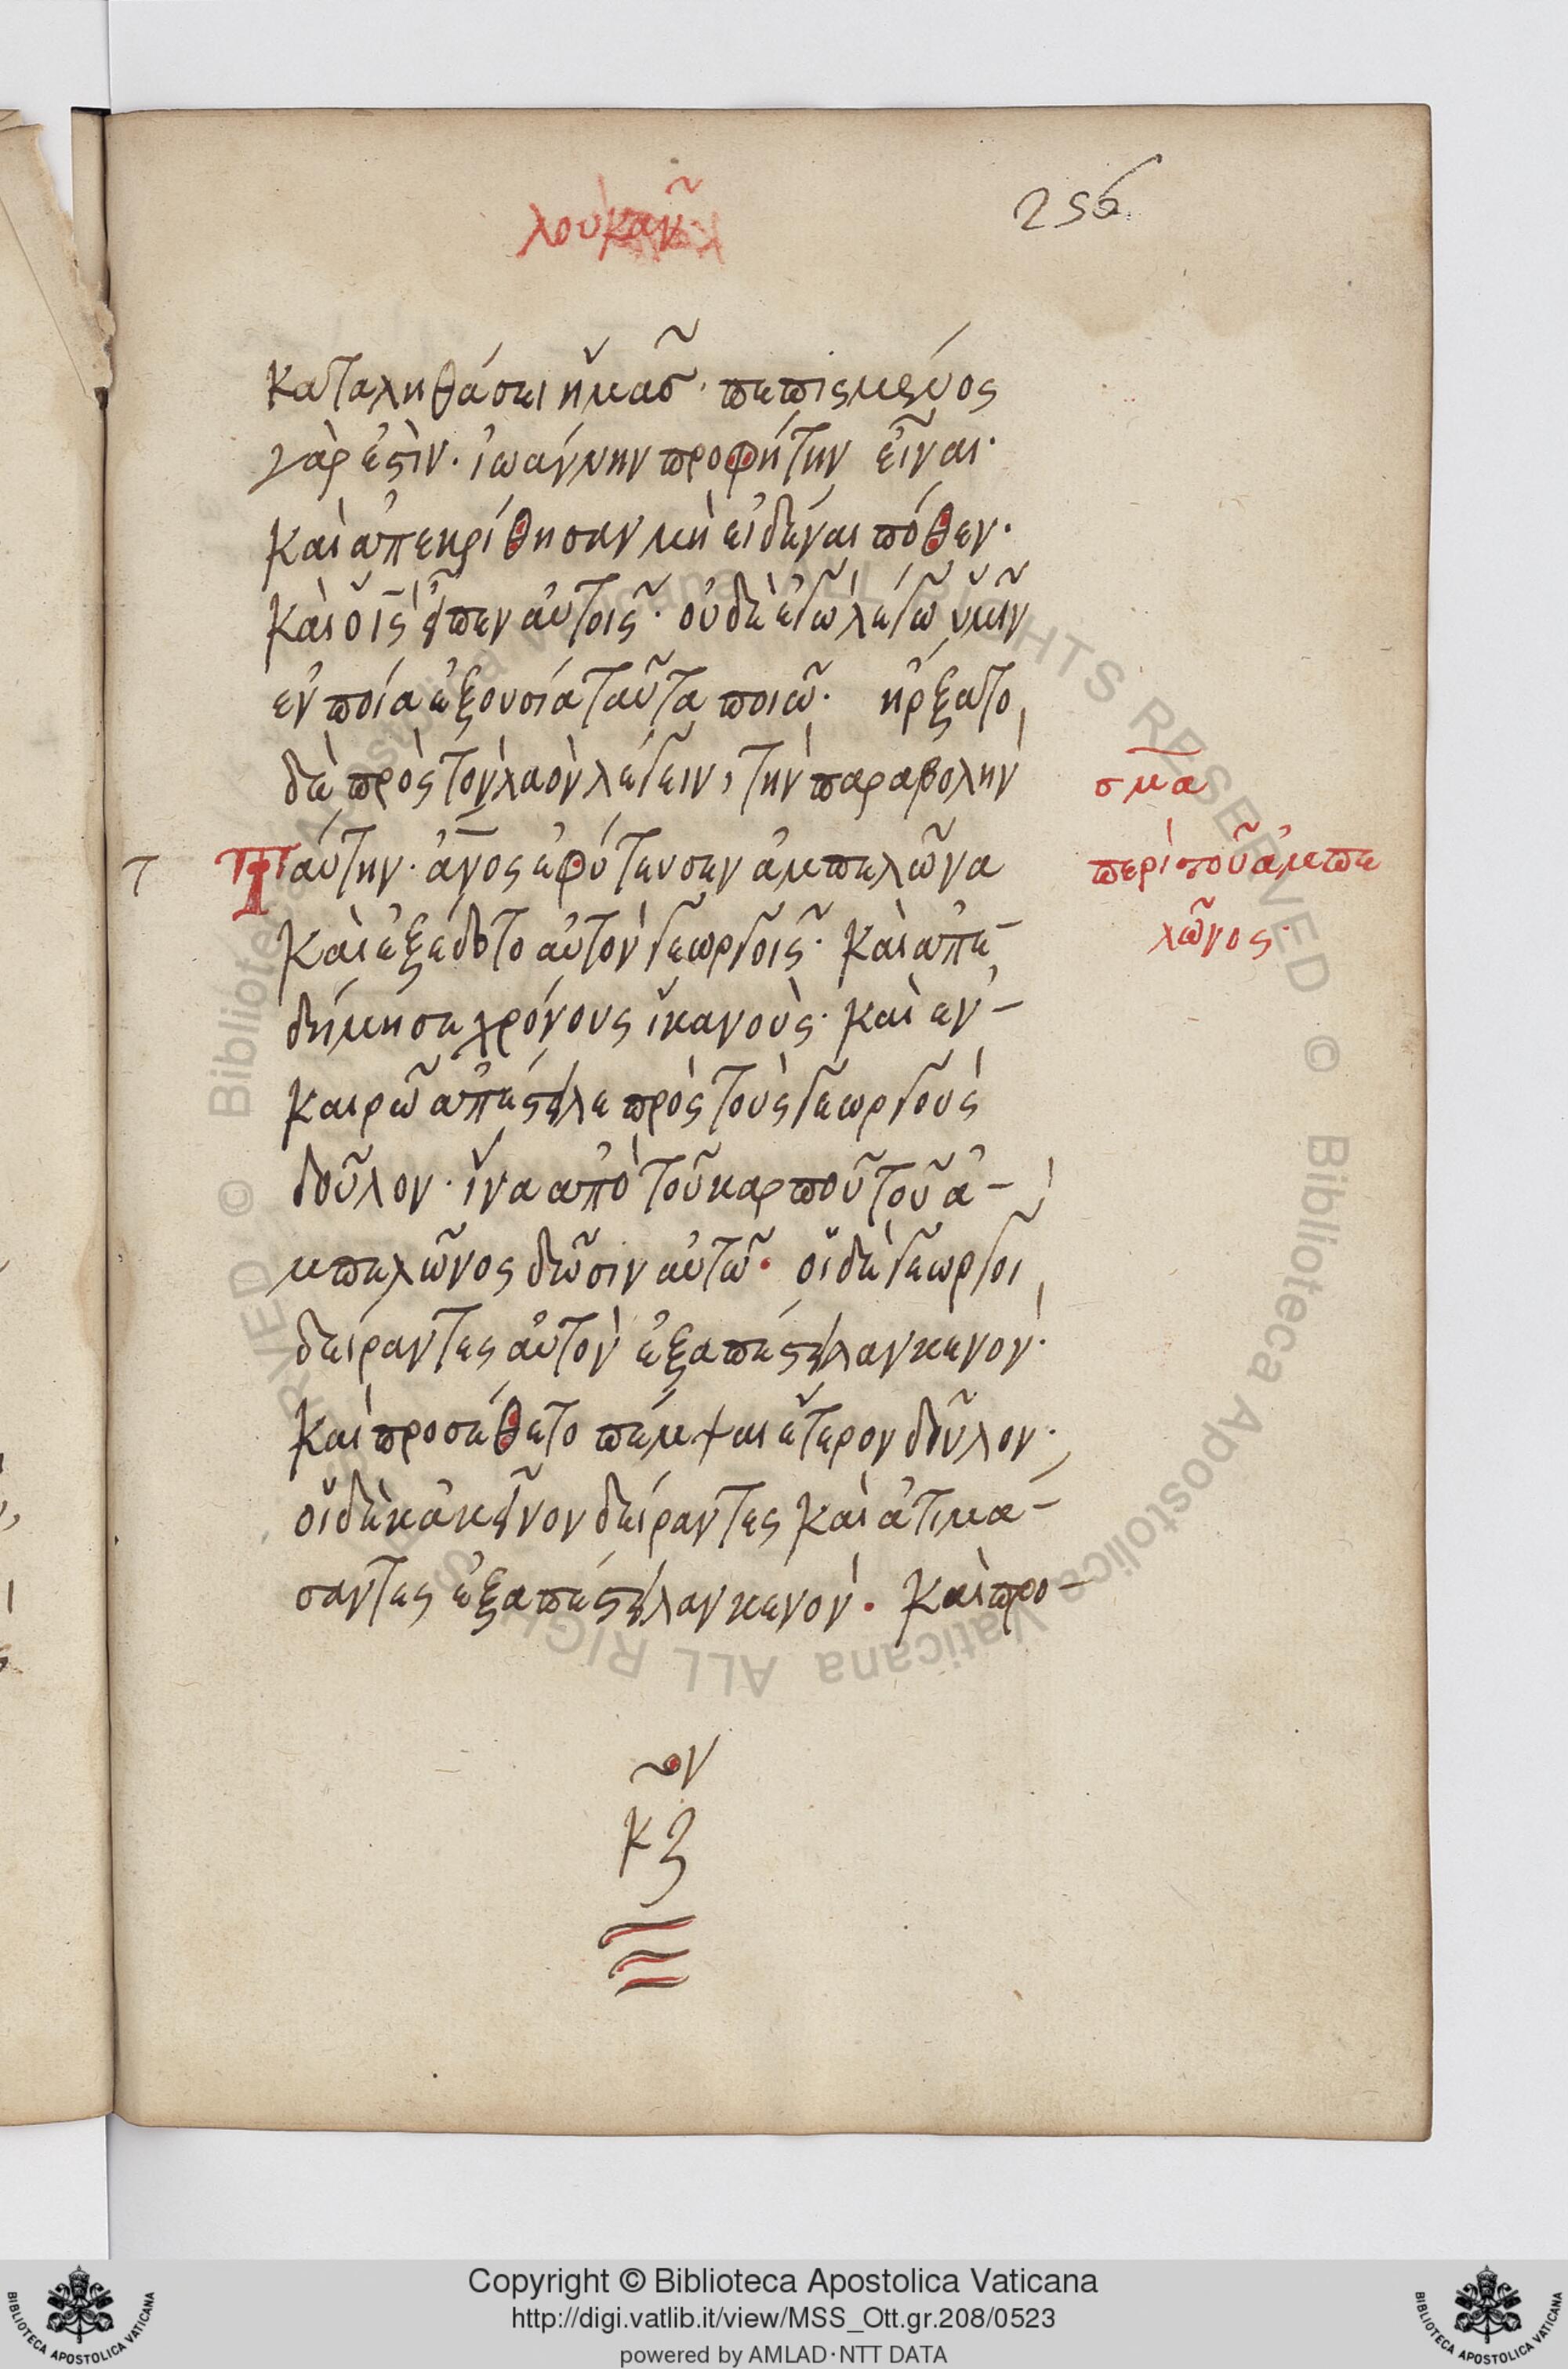 λουκαν
256
καταλιθάσει ἥμας̃· πεπισμένος
γὰρ ἐστὶν· ἰωάννην προφήτην εἶναι·
καὶ ἀπεκρίθησαν μὴ εἰδέναι πόθεν·
καὶ ὁ ις̅ εἶπεν αὐτοῖς· οὐδὲ ἐγὼ λέγω ὑμῖν
ἐν ποία ἐξουσία ταῦτα ποιῶ· ἤρξατο
δὲ πρὸς τὸν λαὸν λέγειν, τὴν παραβολὴν
σμα
τ
ταύτην· ἄνος ἐφύτευσεν ἀμπελῶνα
περὶ τοῦ ἀμπε
καὶ ἐξέδοτο αὐτὸν γεωργοῖς· καὶ ἀπε-
λῶνος·
δήμησε χρόνους ἱκανοὺς· καὶ ἐν-
καιρῶ ἀπέστειλε πρὸς τοὺς γεωργοὺς
δοῦλον· ἵνα ἀπὸ τοῦ καρποῦ τοῦ ἀ-
μπελῶνος δῶσιν αὐτῶ· οἱ δὲ γεωργοὶ
δείραντες αὐτὸν ἐξαπέστειλαν κενὸν·
καὶ προσέθετο πέμψαι ἕτερον δοῦλον·
οἱ δὲ κἀκεῖνον δείραντες καὶ ἀτιμά-
σαντες ἐξαπέστειλαν κενὸν· καὶ προ-
ον
κζ
Copyright © Biblioteca Apostolica Vaticana
http://digi.vatlib.it/view/MSS_Ott.gr.208/0523
powered by AMLAD·NTT DATA